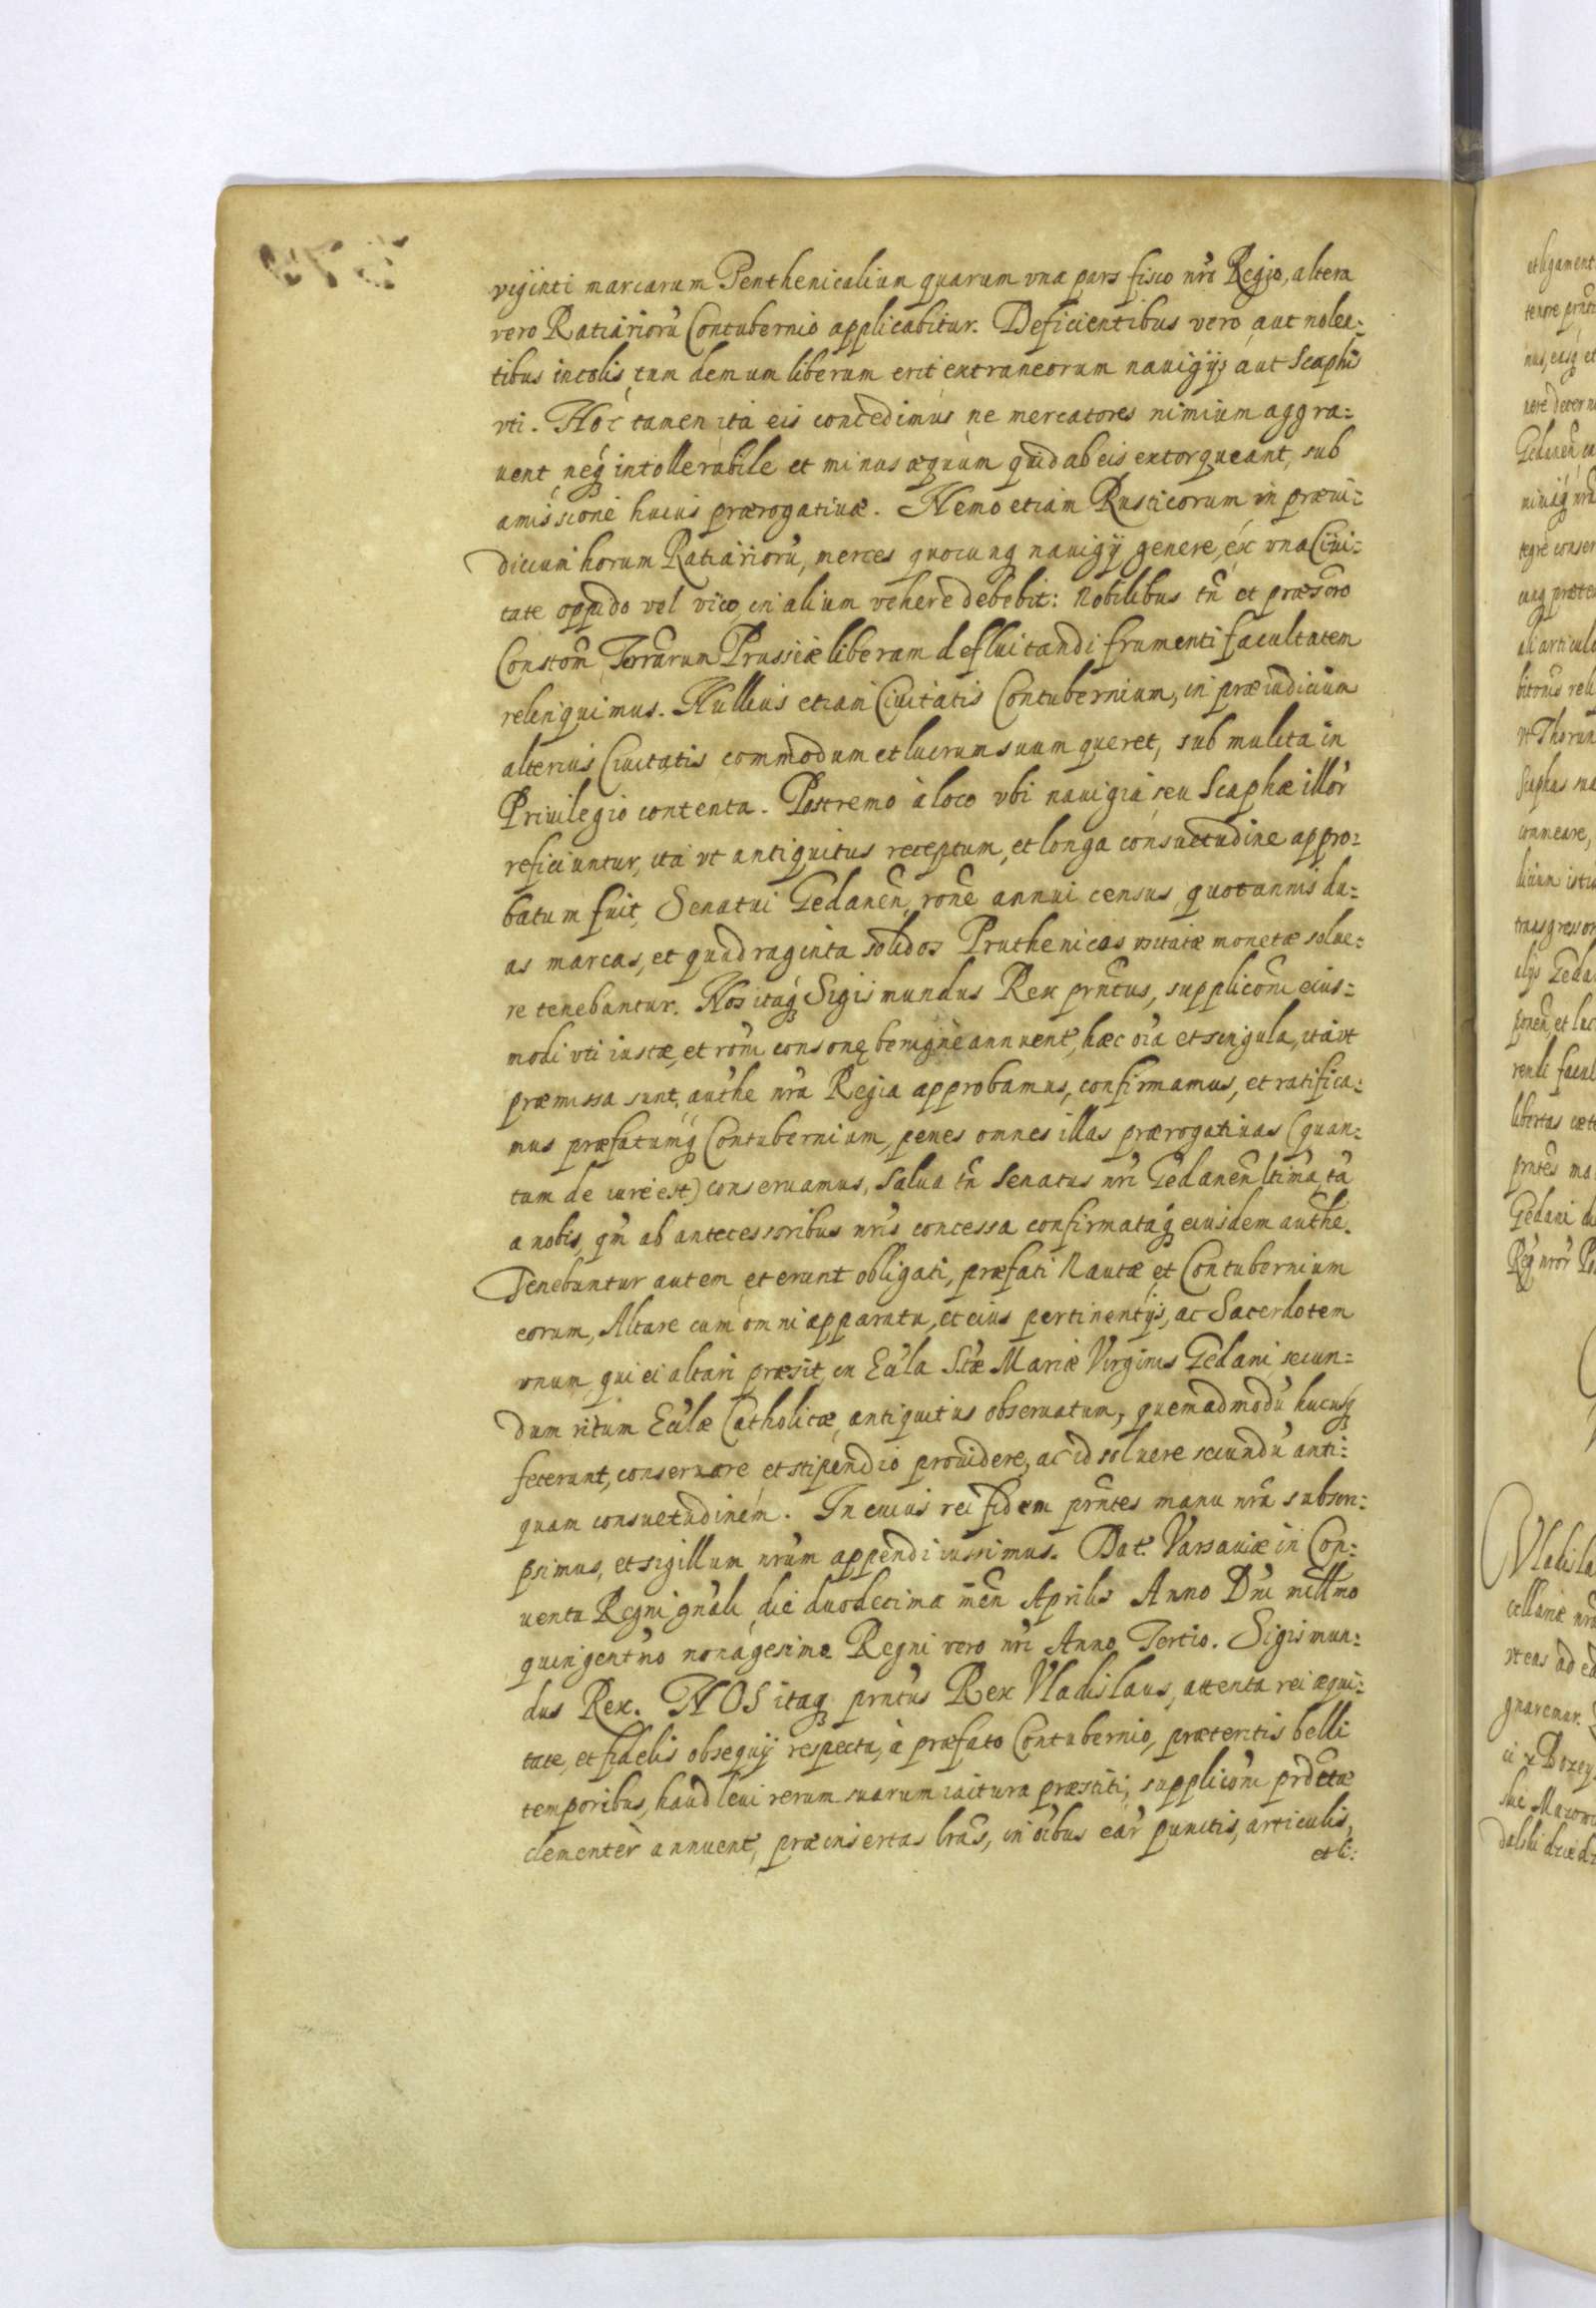 viginti marcarum Penthenicalium quarum vna pars fisco nr̃o Regio, altera
vero Ratiariorũ Contubernio applicabitur. Deficientibus vero aut nolen:
tibus incolis, tum demum liberum erit extraneorum nauigijs aut Scaphis
vti. Hoc tamen ita eis concedimus ne mercatores nimium aggra:
uent neq́ intollerabile et minus æquum quid ab eis extorqueant, sub
amissione huius prærogatiuæ. Nemo etiam Rusticorum in præiu:
dicium horum Ratiariorũ, merces quocunq nauigij genere, ex vna Ciui:
tate oppido vel vico, in alium vehere debebit: Nobilibus tñ et præsõro
Constom̃ Terrarum Prussiæ liberam defluitandi frumenti facultatem
relinquimus. Nullius etiam Ciuitatis Contubernium, in præiudicium
alterius Ciuitatis commodum et lucrum suum queret, sub mulcta in
Priuilegio contenta. Postremo à loco vbi nauigia seu Scaphæ illor̃
reficiuntur, ita vt antiquitus receptum, et longa consuetudine appro:
batum fuit, Senatui Gedaneñ, rõne annui census, quotannis du:
as marcas, et quadraginta solidos Pruthenicos vsitatæ monetæ solue:
re tenebantur. Nos itaq́ Sigismundus Rex prñtus, supplicõni eius:
modi vti iustæ, et rõni consonę benignè annuent̃, hæc oĩa et singula, ita vt
præmissa sunt, autħe nr̃a Regia approbamus, confirmamus, et ratifica:
mus præfatumq́ Contubernium, penes omnes illas prærogatiuas (quan:
tum de iure est) conseruamus, Salua tñ Senatus nr̃i Gedaneñ ltima, tã
a nobis, qm̃ ab antecessoribus nr̃is concessa confirmataq́ eiusdem autħe.
Tenebuntur autem et erunt obligati, præfati Nautæ et Contubernium
eorum, Altare cum omni apparatu, et eius pertinentijs, ac Sacerdotem
vnum qui ei altari præsit, in Eccl̃a Stæ Mariæ Virginis Gedani, secun:
dum ritum Eccl̃æ Catholicæ, antiquitus obseruatum, quemadmodũ hucusq
fecerunt, conseruare et stipendio prouidere, ac id soluere secundũ anti:
quam consuetudinem. In cuius rei fidem prñtes manu nr̃a subscri:
psimus, et sigillum nr̃um appendi iussimus. Dat. Varsauiæ in Con:
uentu Regni gñali die duodecima meñ Aprilis Anno Dñi millmo
quingentmo nonagesimo Regni vero nr̃i Anno Tertio. Sigismun:
dus Rex. NOS itaq prñtus Rex Vladislaus, attenta rei æqui:
tate, et fidelis obsequij respectu, à præfato Contubernio, præteritis belli
temporibus, haud leui rerum suarum iactura præstiti, supplicõni prdctæ
clementèr annuent̃, præinsertas lrãs, in oĩbus eãr punctis, articulis,
et li: